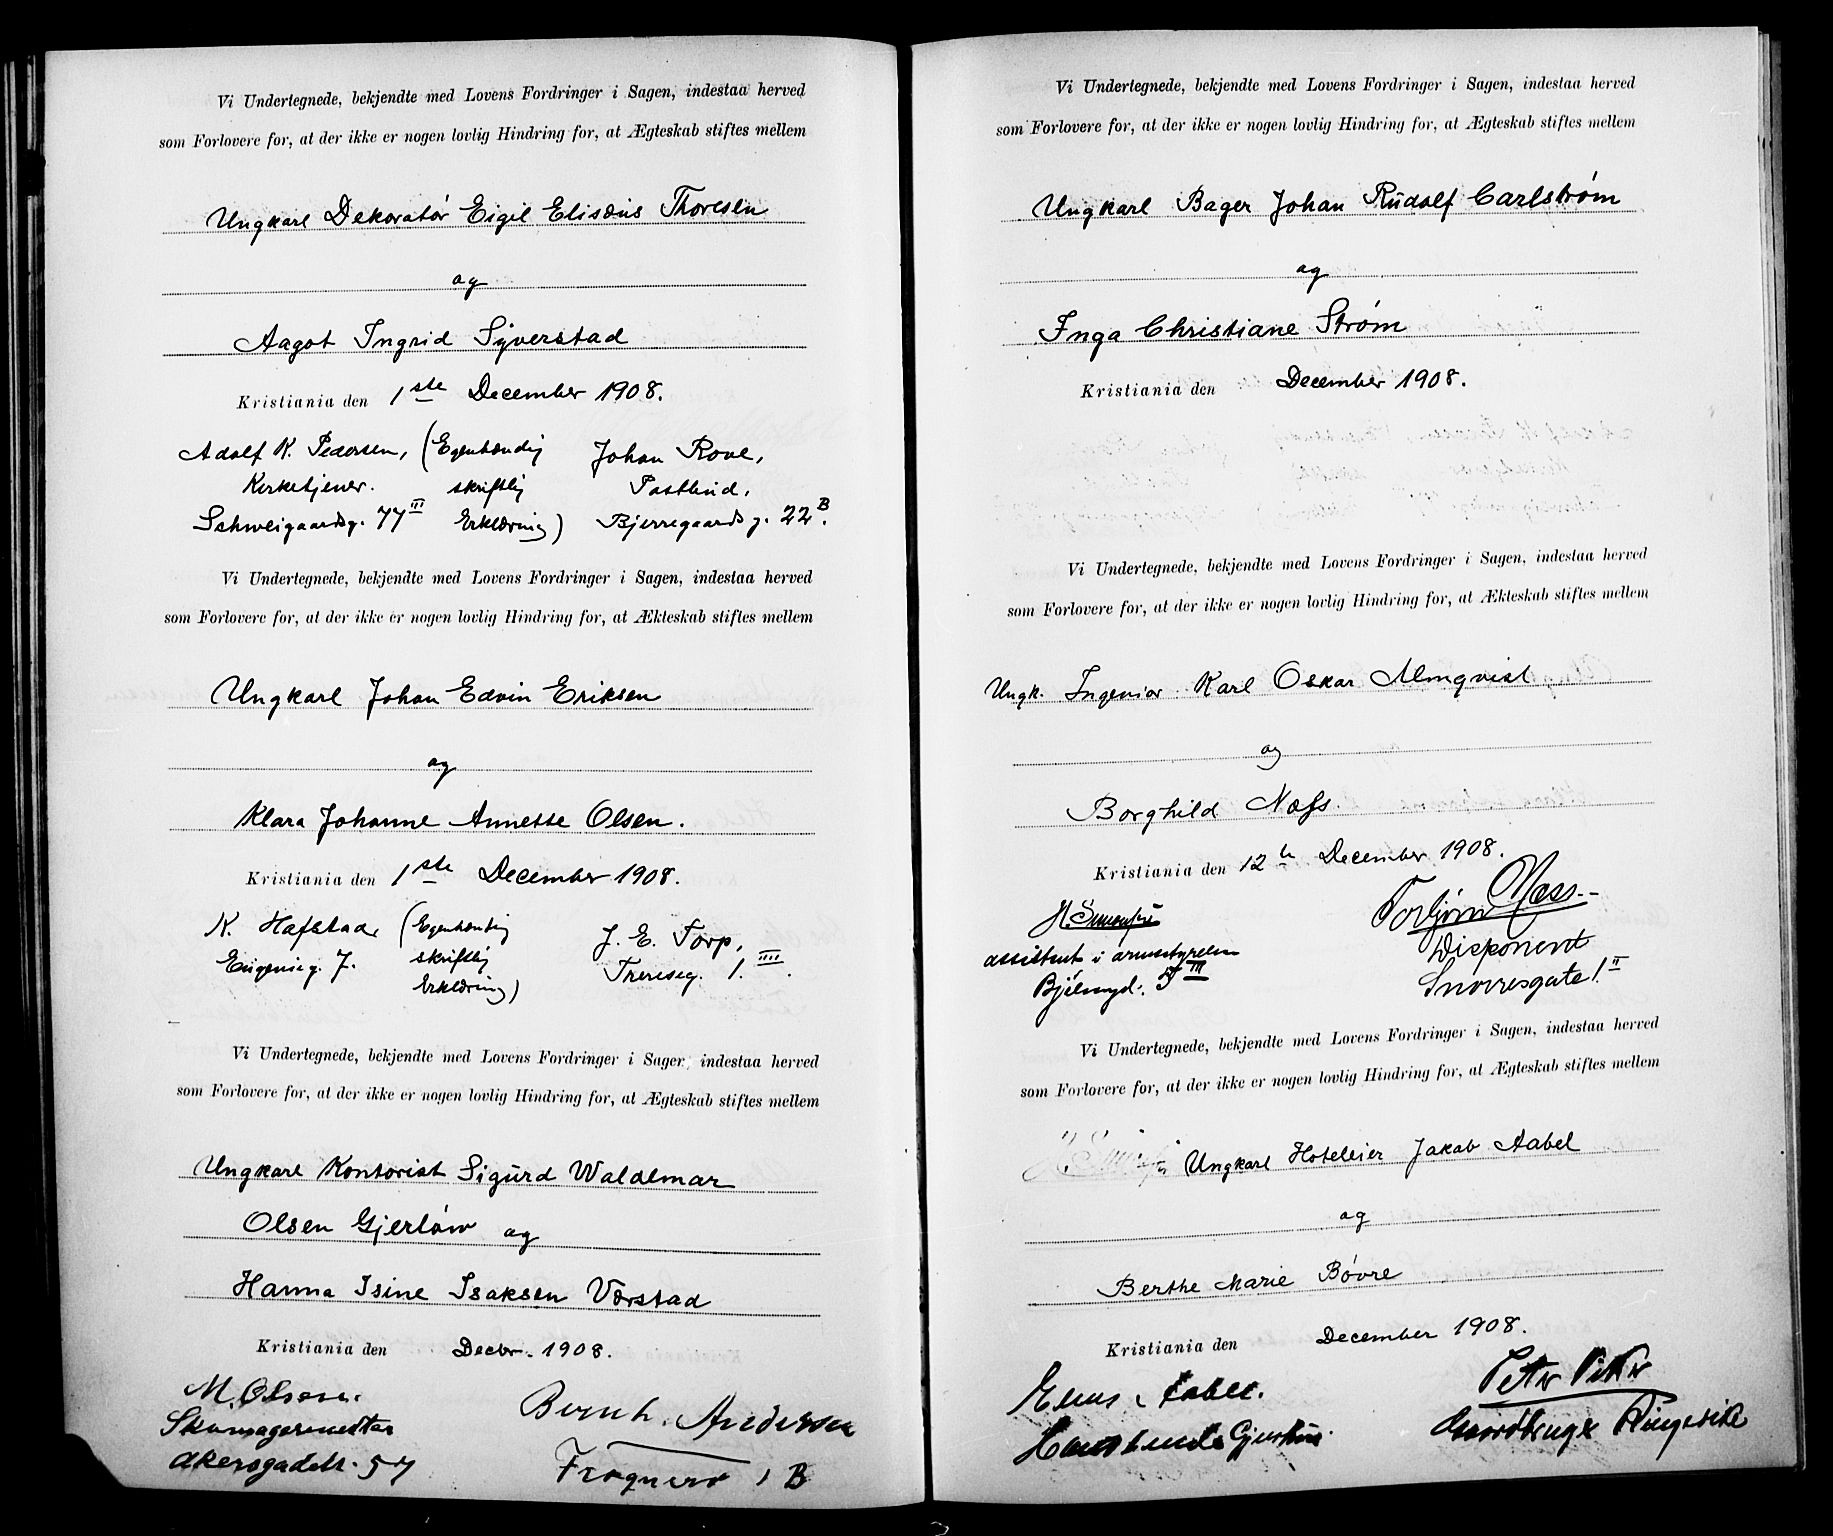 Vi Undertegnede, bekjendte med Lovens Fordringer i Sagen, indestaa herved
som Forlovere for, at der ikke er nogen lovlig Hindring for, at Ægteskab stiftes mellem
Ungkarl Dekoratør Eigil Elisæus Thoresen
og
Aagot Ingrid Syverstad
Kristiania den 1ste December 1908.
Adolf K. Pedersen, (Egenhændig Johan Rove,
Kirketjener. skriftlig Postbud,
Schweigaardsg. 77III Erklæring) Bjerregaardsg. 22B.
Vi Undertegnede, bekjendte med Lovens Fordringer i Sagen, indestaa herved
som Forlovere for, at der ikke er nogen lovlig Hindring for, at Ækteskab stiftes mellem
Ungkarl Johan Edvin Eriksen
og
Klara Johanne Annette Olsen.
Kristiania den 1ste December 1908.
K. Hafstad, (Egenhændig J. E. Torp,
Eugenieg. 7. skriftlig Thereseg. 1.IIII.
Erklæring)
Vi Undertegnede, bekjendte med Lovens Fordringer i Sager, indestaa herved
som Forlovere for, at der ikke er nogen lovlig Hindring for, at Ægteskab stiftes mellem
Ungkarl Kontorist Sigurd Waldemar
Olsen Gjerløw og
Hanna Isine Isaksen Værstad
Kristiania den Decbr. 1908.
M. Olsen. Bernh. Andersen
Skomagermester
Akersgaden 57 1 B
Vi Undertegnede, bekjendte med Lovens Fordringer i Sagen, indestaa herved
som Forlovere for, at der ikke er nogen lovlig Hindring for, at Ægteskab stiftes mellem
Ungkarl Bager Johan Rudolf Carlstrøm
og
Inga Christiane Strøm
Kristiania den December 1908.
Vi Undertegnede, bekjendte med Lovens Fordringer i Sagen, indestaa herved
som Forlovere for, at der ikke er nogen lovlig Hindring for, at Ækteskab stiftes mellem
Ungk. Ingeniør Karl Oskar Almqvist
og
Borghild Næss.
Kristiania den 12te December 1908.
Torbjørn Næss.
assistent i armestyrelsen Disponent
5III Snorresgate 1.II
Vi Undertegnede, bekjendte med Lovens Fordringer i Sagen, indestaa herved
som Forlovere for, at der ikke er nogen lovlig Hindring for, at Ægteskab stiftes mellem
Ungkarl Hoteleier Jakob Aabel
og
Berthe Marie Bøvre
Kristiania den December 1908.
Aabel. Peter
Gaardbruger Ringerike